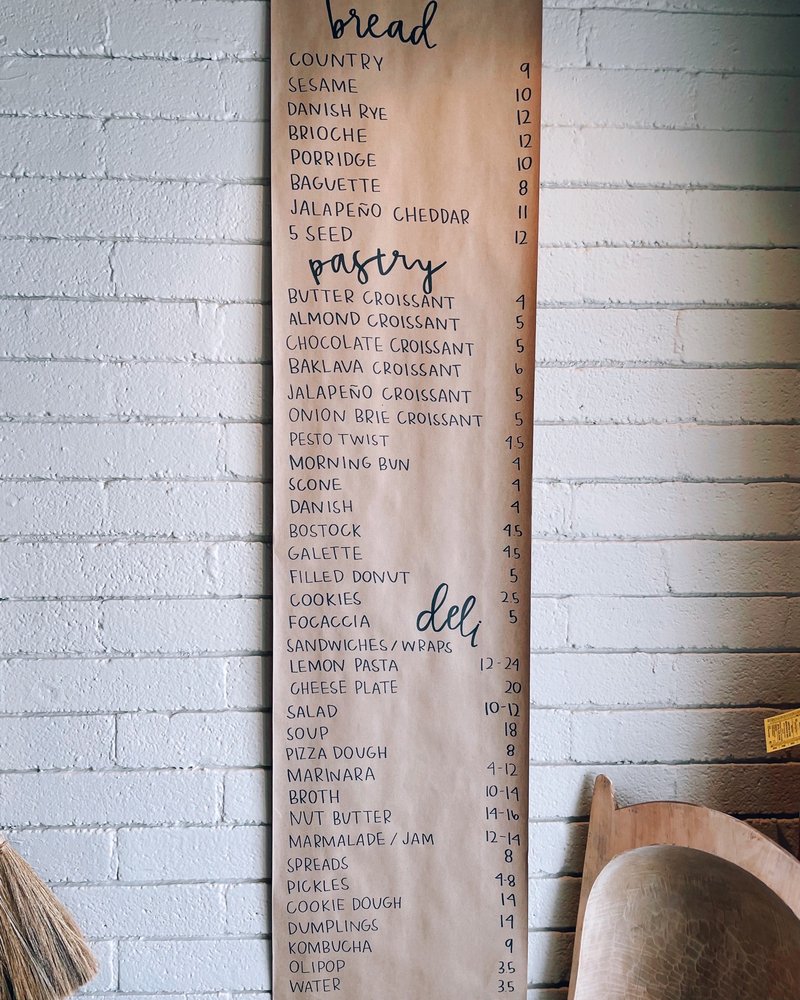 bread
COUNTRY 9
SESAME 10
DANISH RYE 12
BRIOCHE 12
PORRIDGE 10
BAGUETTE 8
JALAPEÑO CHEDDAR 11
5 SEED 12
pastry
BUTTER CROISSANT 4
ALMOND CROISSANT 5
CHOCOLATE CROISSANT 5
BAKLAVA CROISSANT 6
JALAPEÑO CROISSANT 5
ONION BRIE CROISSANT 5
PESTO TWIST 4.5
MORNING BUN 4
SCONE 4
DANISH 4
BOSTOCK 4.5
GALETTE 4.5
FILLED DONUT 5
COOKIES 2.5
FOCACCIA 5
deli
SANDWICHES/WRAPS
LEMON PASTA 12-24
CHEESE PLATE 20
SALAD 10-12
SOUP 18
PIZZA DOUGH 8
MARINARA 4-12
BROTH 10-14
NUT BUTTER 14-16
MARMALADE/JAM 12-14
SPREADS 8
PICKLES 4-8
COOKIE DOUGH 14
DUMPLINGS 14
KOMBUCHA 9
OLIPOP 3.5
WATER 3.5